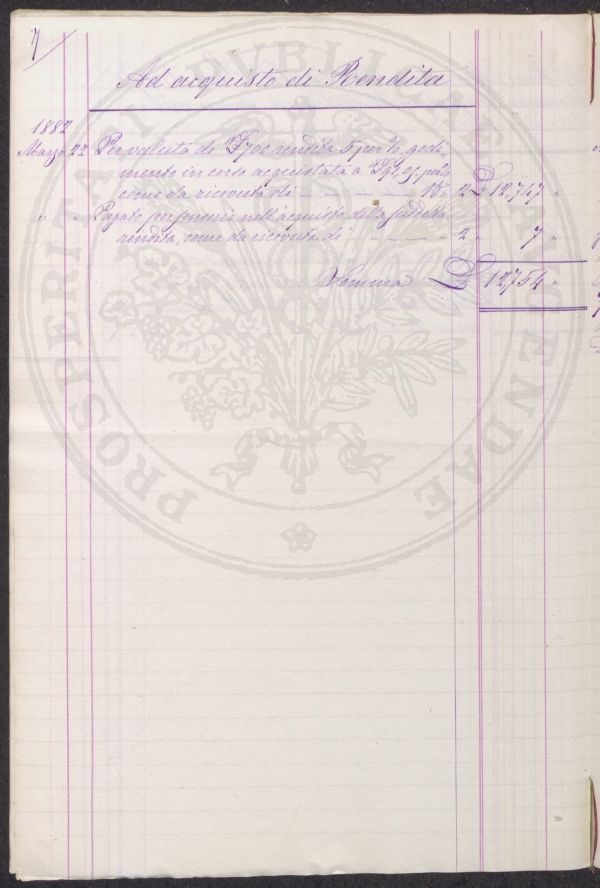 7
Ad acquisto di Rendita
1882
Marzo 22 Per valuta di £ 700 rendita 5 per %, godi-
mento in corso acquistata a £ per %
come da ricevuta di — — — — N. 2 £ 12,747 "
" " Pagato per senseria nell'acquisto della suddetta
rendita, come da ricevuta di — — — — " 2 " 7 "
Somma £ 12,754 "
PROSPERITATI PUBLICAE AUGENDAE